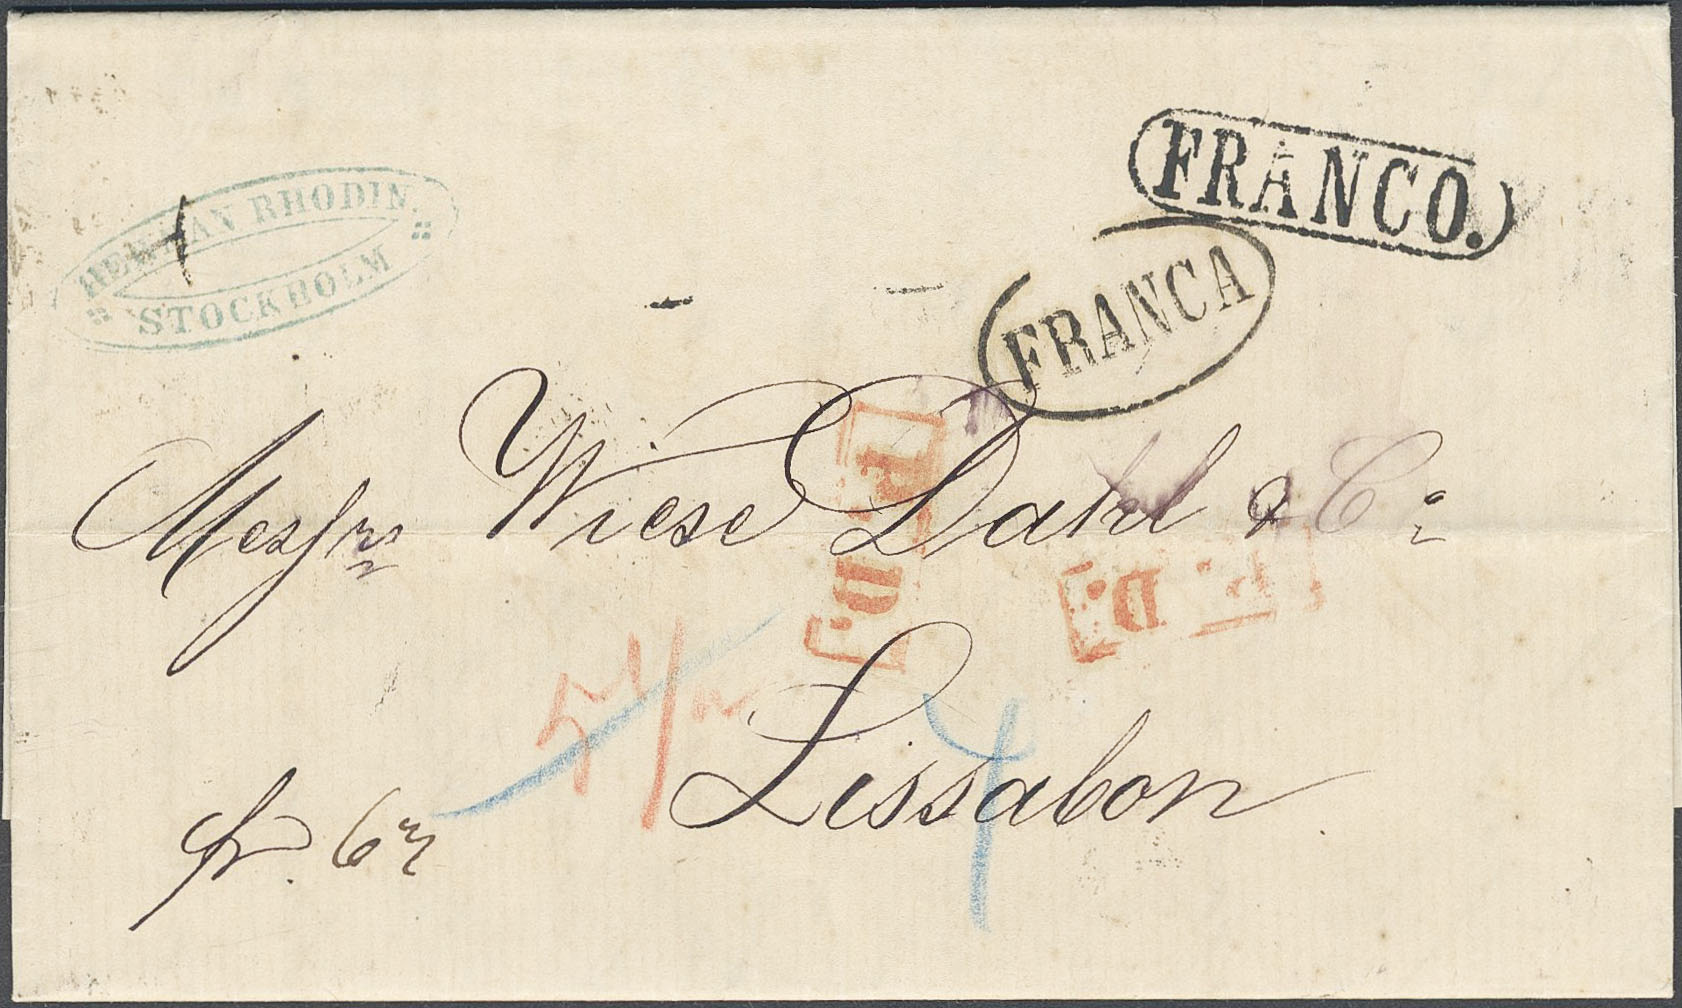 FRANCO.
HERMAN RHODIN
STOCKHOLM
FRANCA
Messrs Wiese Dahl & Co
P. D.
P. D.
5 1/2
Lissabon
4
fr. 6